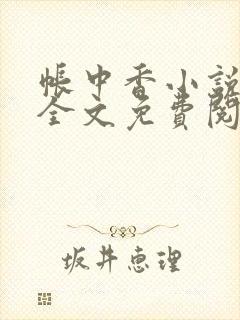 帳中香小說
全文免費閱
坂井恵理